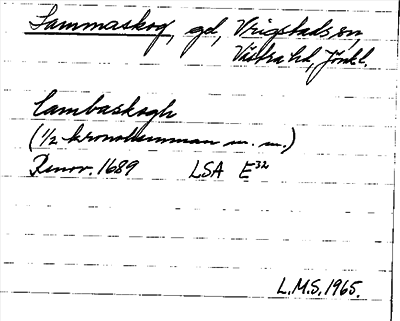 Lammaskog, gd, Vrigstads sn,
Västra hd, Jönk l.
Lambaskogh
(1/2 kronohemman m. m.)
Renov. 1689 LSA E32
L.M.S. 1965.